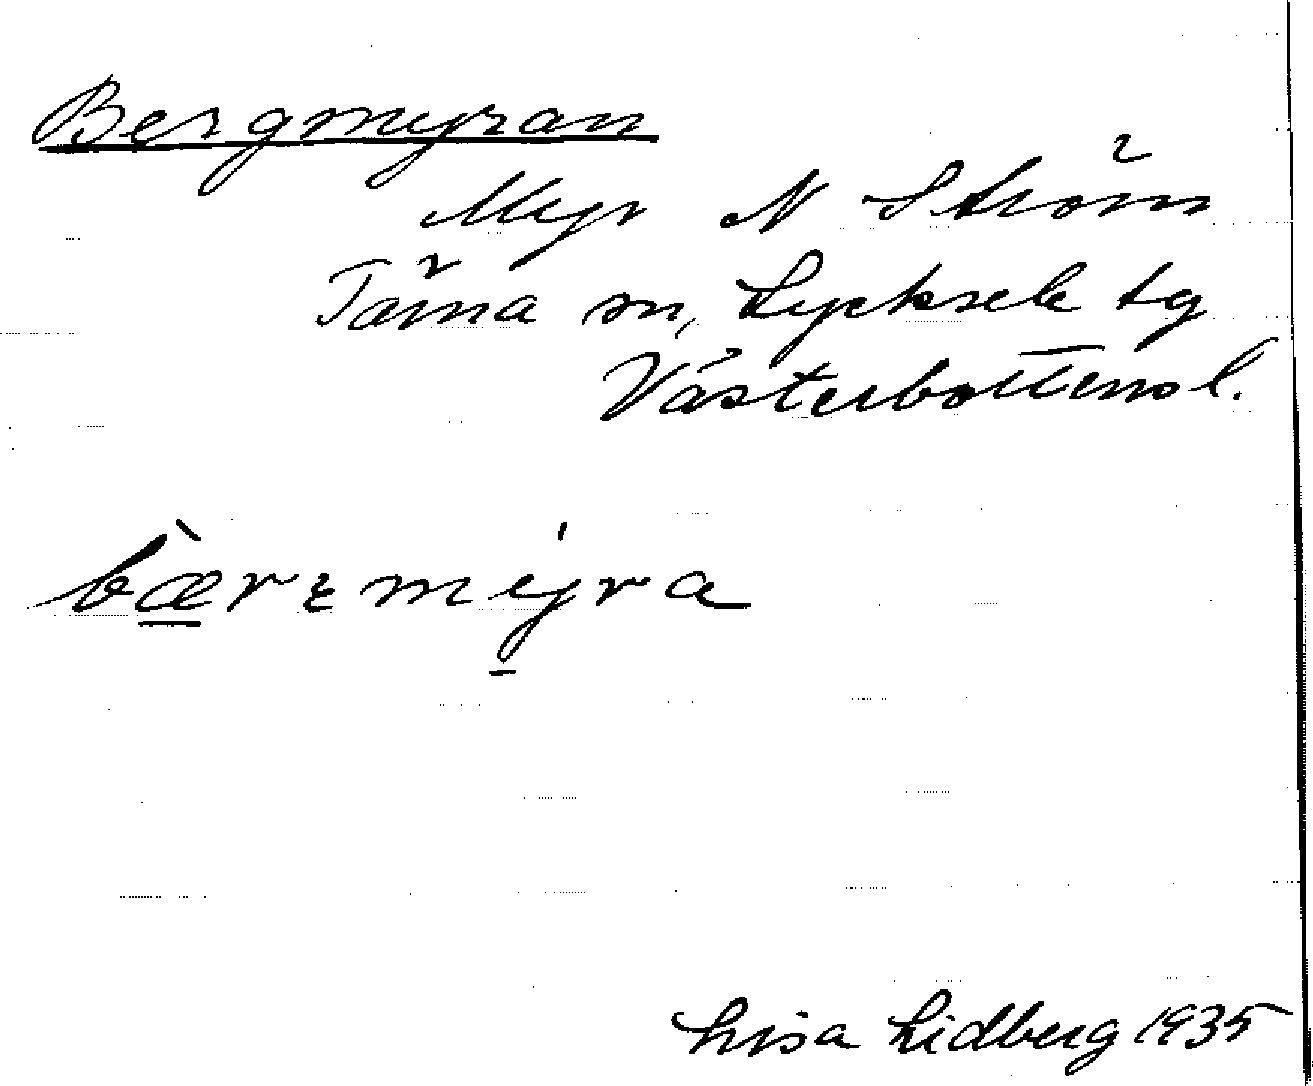 Bergmyran
Myr N Ström
Tärna sn, Lycksele tg
Västerbottensl.
bærɛmyra
Lisa Lidberg 1935